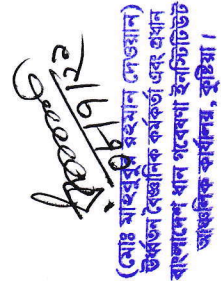 ০৮/৭/১২
(মোঃ মাহবুবুর রহমান দেওয়ান)
উর্ধ্বতন বৈজ্ঞানিক কর্মকর্তা এবং প্রধান
বাংলাদেশ ধান গবেষণা ইনস্টিটিউট
আঞ্চলিক কার্যালয়, কুষ্টিয়া ।